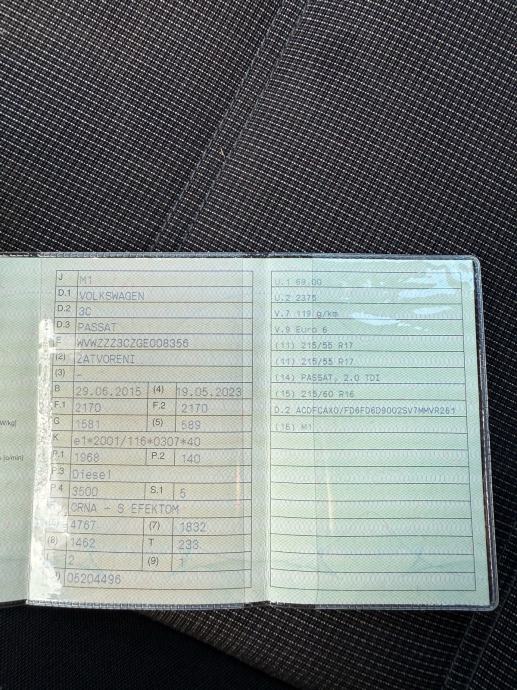 J M1
D.1 VOLKSWAGEN
D.2 3C
D.3 PASSAT
E WVWZZZ3CZGE008356
(2) ZATVORENI
(3) -
B 29.06.2015 (4) 19.05.2023
F.1 2170 F.2 2170
G 1581 (5) 589
K e1*2001/116*0307*40
P.1 1968 P.2 140
P.3 Diesel
P.4 3500 S.1 5
CRNA - S EFEKTOM
4767 (7) 1832
(8) 1462 T 233
2 (9) 1
05204496
W/kg]
[o/min]
U.1 69.00
U.2 2375
V.7 119 g/km
V.9 Euro 6
(11) 215/55 R17
(11) 215/55 R17
(14) PASSAT, 2.0 TDI
(15) 215/60 R16
D.2 ACDFCAX0/FD6FD6D9002SV7MMVR261
(16) M1